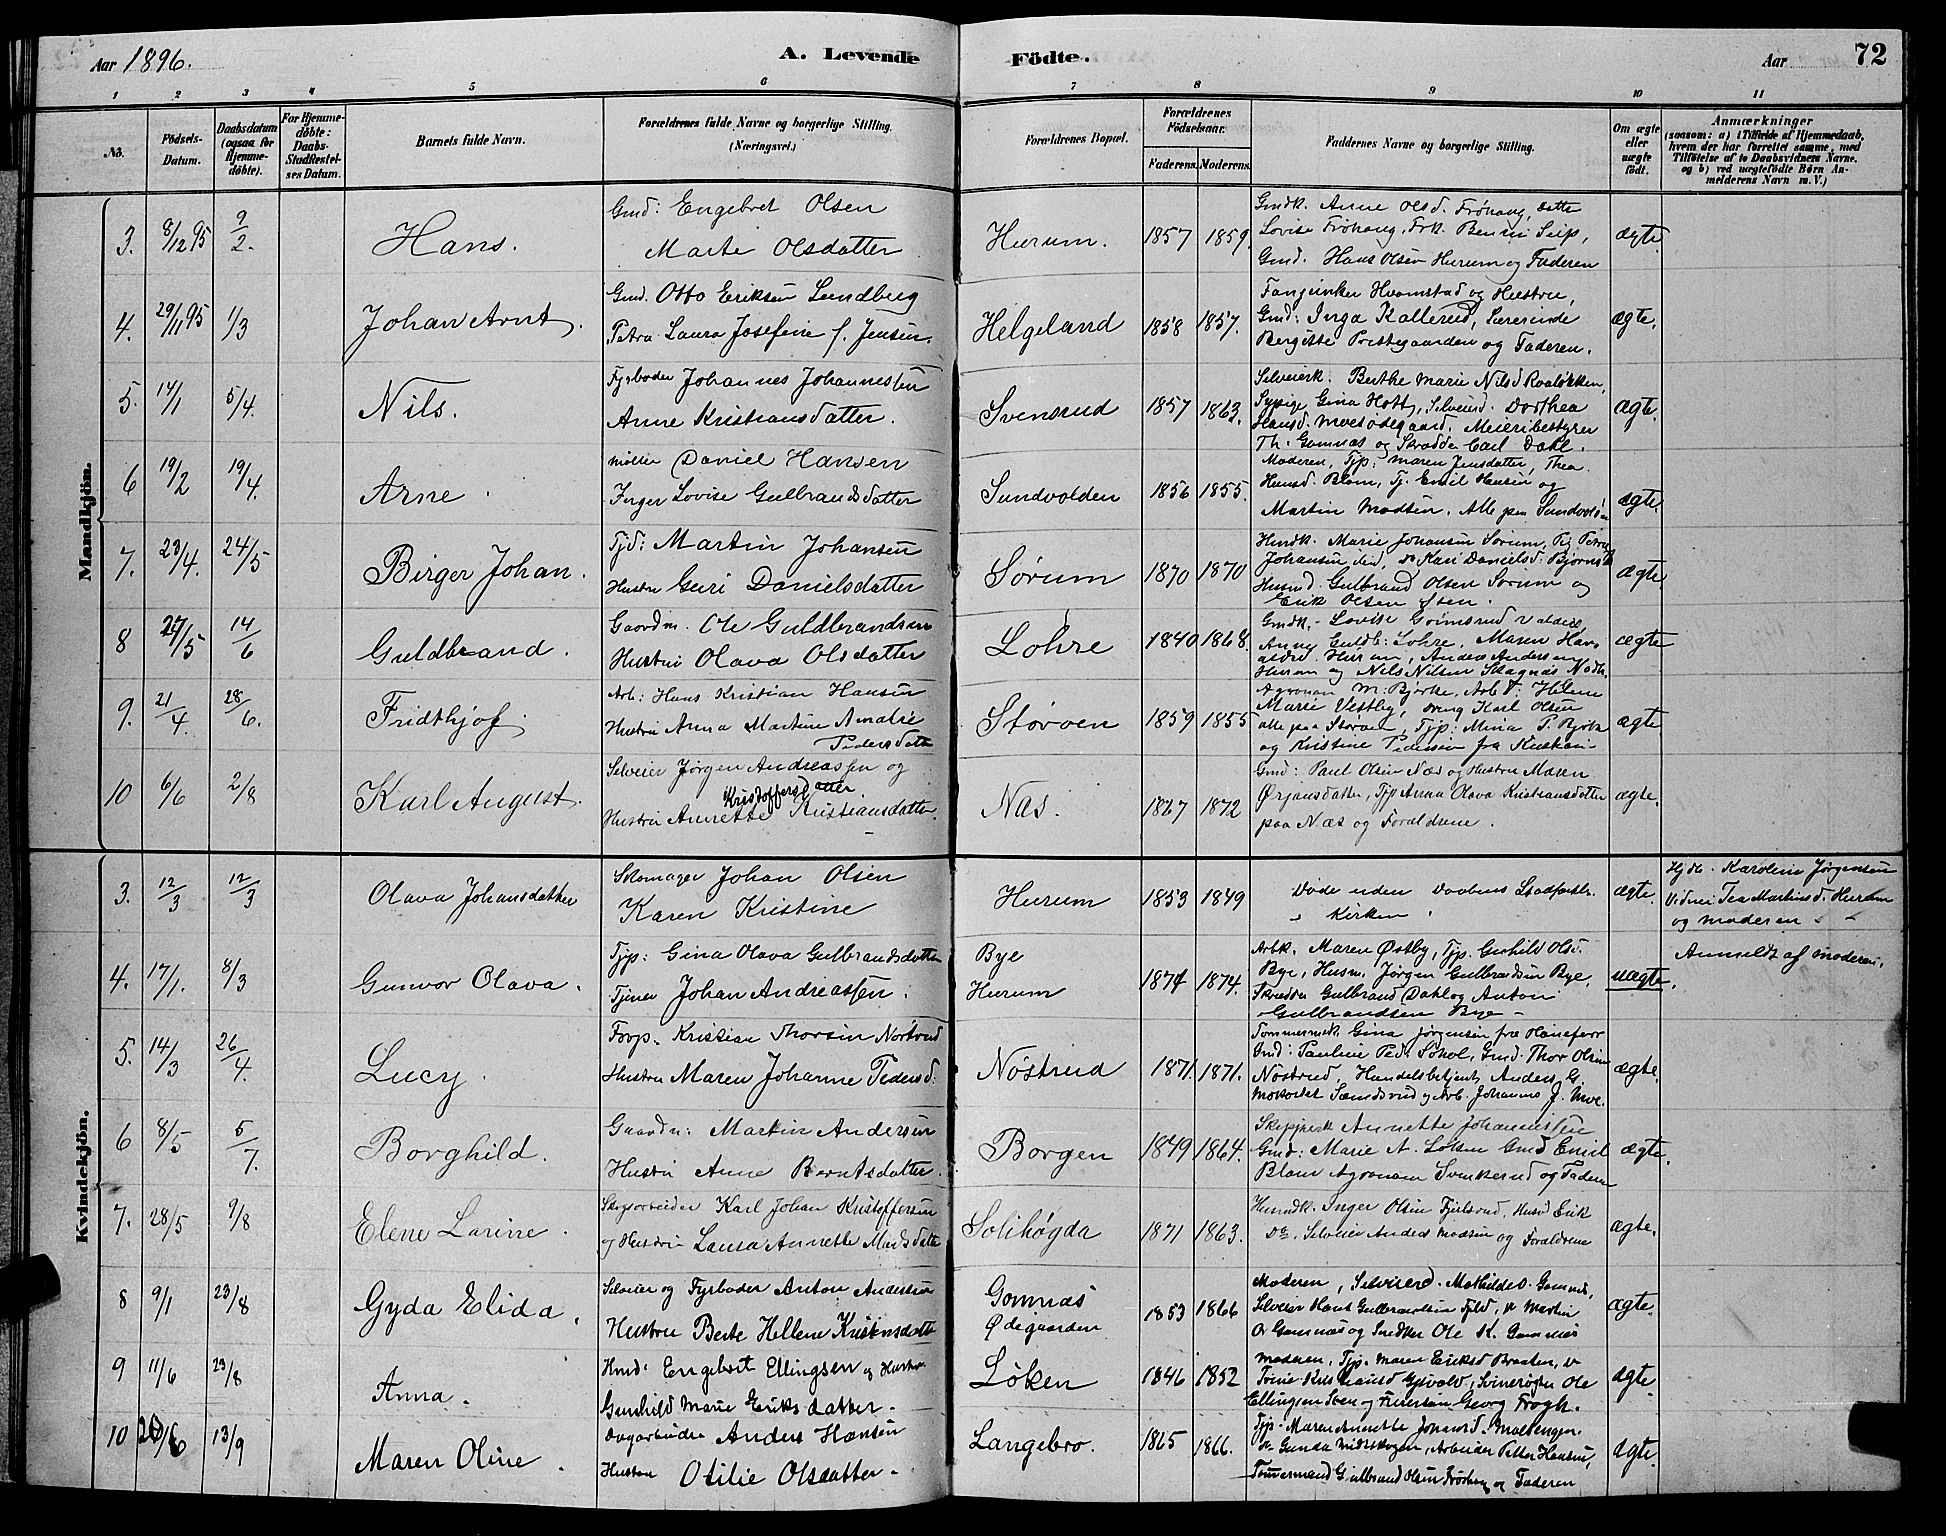 Aar 1896.
A. Levende
Födte.
Aar
72
1 2 3 4 5 6 7 8 9 10 11
No.
Födsels-
Datum.
Daabsdatum
(ogsaa for
Hjemme-
döbte).
For Hjemme-
döbte:
Daabs-
Stadfæstel-
ses Datum.
Barnets fulde Navn.
Forældrenes fulde Navne og borgerlige Stilling.
(Næringsvei.)
Forældrenes Bopæl.
Forældrenes
Födselsaar.
Faderens. Moderens.
Faddernes Navne og borgerlige Stilling.
Om ægte
eller
uægte
födt.
Anmærkninger
(saasom: a) i Tilfælde af Hjemmedaab,
hvem der har forrettet samme, med
Tilföielse af to Daabsvidners Navne,
og b) ved uægtefödte Börn An-
melderens Navn m. V.)
Mandkjön.
3. 8/12 95 9/2. Hans.
Gmd: Engebret Olsen
Marte Olsdatter
Hurum. 1857 1859.
Gmdk. Anne Olsd. Frøhaug, Datte
Lovise Frøhaug, Frk. Seip,
Gmd. Hans Olsen Hurum og Faderen
ægte
4. 29/11 95 1/3 Johan Arnt.
Gmd. Otto Eriksen Lundberg
Petra Laura Josefine f. Jensen.
Helgeland 1858 1857.
Hvamstad og Hustru,
Gmd: Inga Kallerud, Lærerinde
Bergitte Prestegaarden og Faderen.
ægte.
5. 14/1 5/4. Nils.
Fyrbøder Johannes Johannessen
Anne Kristiansdatter.
Svensrud 1857 1863.
Selveierk. Berthe Marie Nilsd Roaløkken,
Sypige Gina Hott, Selveierd. Dorthea
Hansd. Moesødegaard, Meieribestyrer
Th. Gomnæs og Skrædder Carl Dahl.
ægte.
6 19/2 19/4. Arne.
Møller Daniel Hansen
Inger Lovise Gulbrandsdatter
Sundvolden 1856 1855.
Moderen, Tjp: Maren Jensdatter, Thea
Blom, Tj. Emil Hansen og
Martin Madsen. Alle paa Sundvolden
ægte.
7. 23/4. 24/5 Birger Johan.
Tjd: Martin Johansen
Hustru Guri Danielsdatter
Sørum 1870 1870
Husmdk. Marie Johansen Sørum, Pig Petra
Johansen ibid, Kari Danielsd.
Husmd. Gulbrand Olsen Sørum og
Erik Olsen
ægte.
8 27/5 14/6 Guldbrand.
Gaardm. Ole Guldbrandsen
Hustru Olava Olsdatter
Lohre 1840 1868.
Gmdk. Lovise Grimsrud
Anne Guldb: Lohre, Maren Hans
datter Hurum, Anders Andersen
Hurum og Nils Nilsen Skagnæs
ægte
9. 21/4. 28/6. Fridthjof.
Arb: Hans Kristian Hansen
Hustru Anna Martine Amalie
Pedersdatter
Størøen 1859 1855
Agronom M. Bjerke, Helene
Marie Vestby, Karl Olsen
alle paa Størøen, Tjp: Mina P.
og Kristine Pedersen fra
ægte
10 6/6 2/8 Karl August.
Selveier Jørgen Andreassen og
Kristoffersdatter.
Hustru Annette Kristiansdatter.
Næs. 1867 1872
Gmd: Paul Olsen Næs og Hustru Maren
Ørjansdatter, Tjp Anna Olava Kristiansdatter
paa Næs og Forældrene.
ægte.
Kvindekjön.
3. 12/3 12/3 Olava Johansdatter
Skomager Johan Olsen
Karen Kristine
Hurum 1853 1849
Døde uden Daabens Stadfæst.
i Kirken
ægte.
Hjdb. Karoline Jørgensen
Vidner: Tea Martinsd. Hurum
og moderen
4. 17/1. 8/3 Gunvor Olava.
Tjp: Gina Olava Gulbrandsdatter
Tjener Johan Andreassen.
Bye
Hurum
1874 1874.
Arbk. Maren Østby, Tjp. Gunhild Olsd.
Bye, Husm. Jørgen Gulbrandsen Bye,
Skrædder Gulbrand Dahl og Anton
Gulbrandsen Bye
uægte.
Anmeldt af moderen.
5. 14/3 26/4. Lucy.
Forp. Kristian Thorsen Nøstrud
Hustru Maren Johanne Pedersd:
Nøstrud 1871. 1871.
Tømmermk. Gina Jørgensen fra Hønefos
Gmd: Pauline Ped. Lohol, Gmd. Thor Olsen
Nøstrud, Handelsbetjent Anders G.
Sandsvud og Arb. Johannes J. Moe.
ægte.
6 8/5 5/7. Borghild.
Gaardm: Martin Andersen
Hustru Anne Berntsdatter.
Borgen 1849 1864.
Annette Johannessen
Gmd: Marie A. Løken Gmd Emil
Blom Agronom Svenkerud og Faderen
ægte.
7. 28/5 9/8 Elene Larine.
Skogarbeider Karl Johan Kristoffersen
og Hustru Laura Annette Madsdatter
Solihøgda 1871 1863.
Husmdk. Inger Olsen Fjelsrud, Husmd Erik
Do. Selveier Anders Madsen og Forældrene
ægte.
8 9/1 23/8 Gyda Elida.
Selveier og Fyrbøder Anton Andersen
Hustru Berte Hellene Kristensdatter
Gomnæs
Ødegaarden
1853 1866
Moderen, Selveierd. Mathilde O. Gomnæs,
Selveier Hans Gulbrandsen Fjeld, Martin
O. Gomnæs og Snedker Ole K. Gomnæs
ægte.
9 11/6 23/8 Anna.
Hmd: Engebret Ellingsen og Hustru
Gunhild Marie Eriksdatter.
Løken 1846 1852
Moderen, Tjp. Maren Eriksd Braaten,
Ole
Ellingsen Steen og Georg Frogh.
ægte.
10 28/6 13/9 Maren Oline.
Dagarbeider Anders Hansen
Hustru Otilie Olsdatter.
Langebro. 1865 1866.
Tjp. Maren Annette
do. Gunda Midtskogen, Arbeider Petter Hansen,
Tømmermand Gulbrand Olsen Frøhaug og Faderen
ægte.